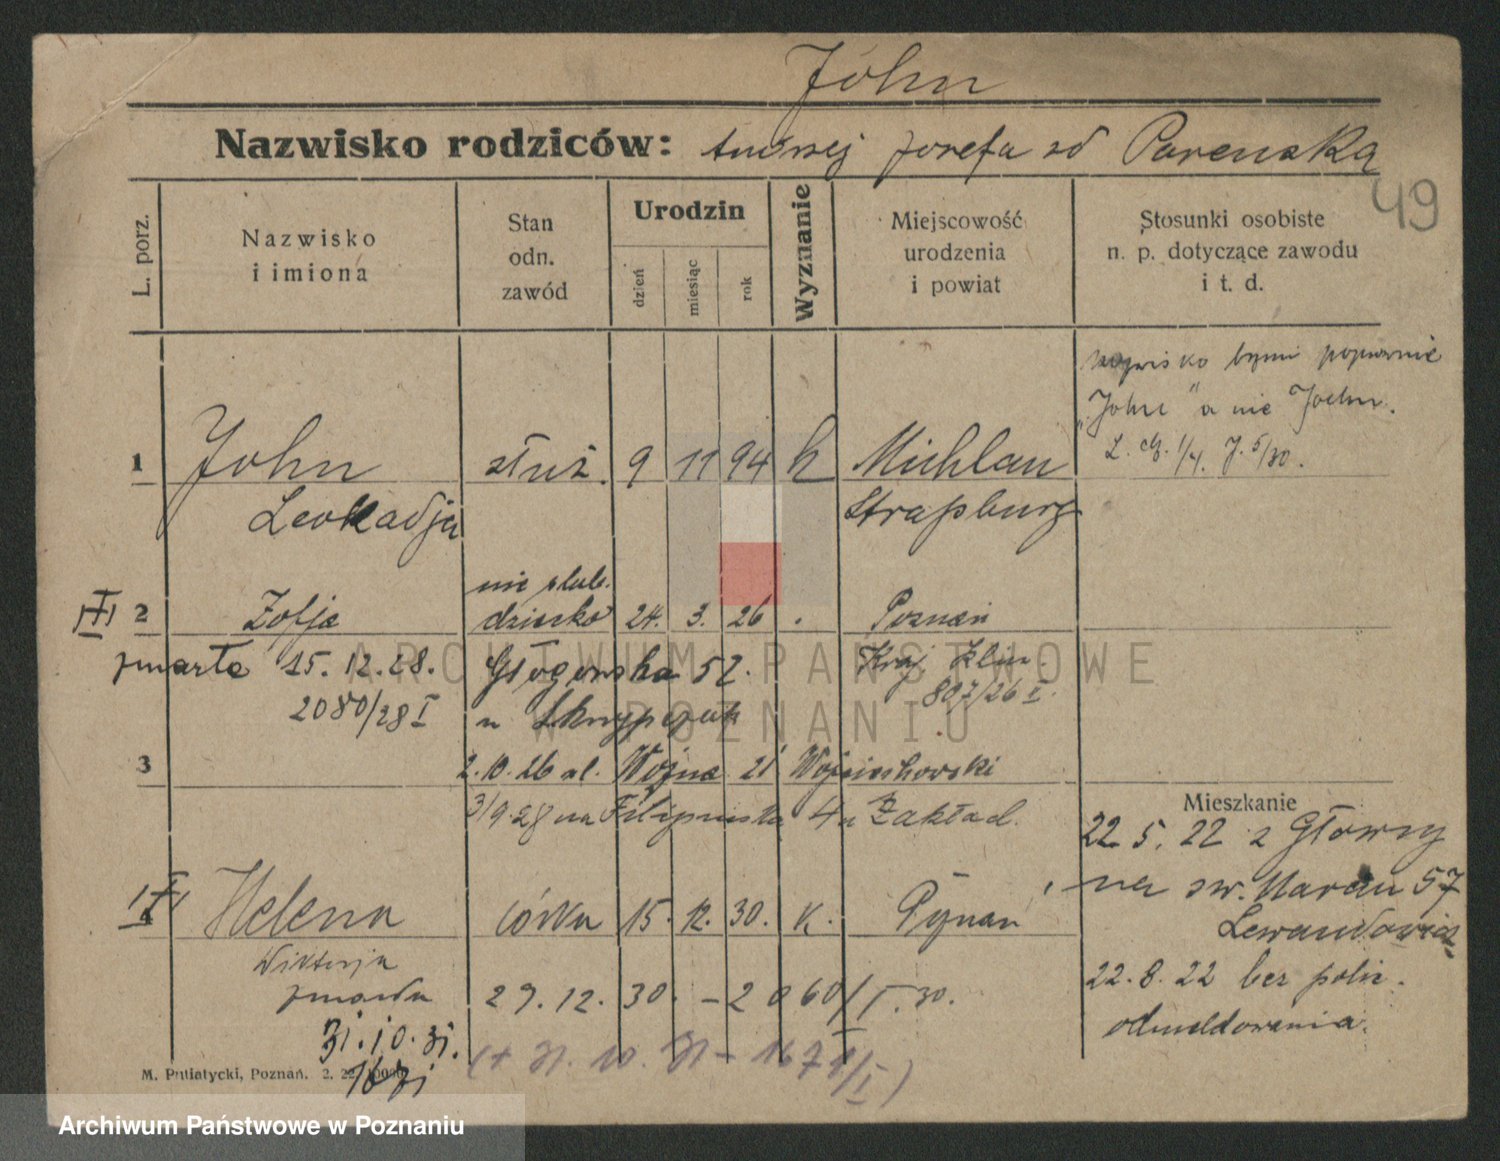 John
Nazwisko rodziców: Andrzej Josefa zd Parenska
49
L. porz.
Nazwisko i imiona
Stan odn. zawód
Urodzin
dzień
miesiąc
rok
Wyznanie
Miejscowość urodzenia i powiat
Stosunki osobiste n. p. dotyczące zawodu i t. d.
nazwisko brzmi poprawnie
"John" a nie Joehn.
1/4. J. 5/30.
1 John służ. 9 11 94 k Michlau
Leokadja Strasburg
nie ślub.
2 Zofja dziecko 24. 3. 26 Poznań
zmarła 15.12.28. Głogowska 52.
807/26 I.
2080/28 I u Skrzypczak
3 2.10.26 ul. Wojciechowski
3/9.28 na 4 u Zakład.
Mieszkanie
22. 5. 22 z Głowny
na św. Marcin 57
Lewandowicz
22.8.22 bez polic.
odmeldowania.
4 Helena córka 15. 12. 30. k. Poznań
Wiktorja
zmarła 29. 12. 30. - 2060/I. 30.
31.10.31.
(+ 31. 10. 31 - 1671/I)
M. Putiatycki, Poznań. 2. 22.
ARCHIWUM PAŃSTWOWE
W POZNANIU
Archiwum Państwowe w Poznaniu